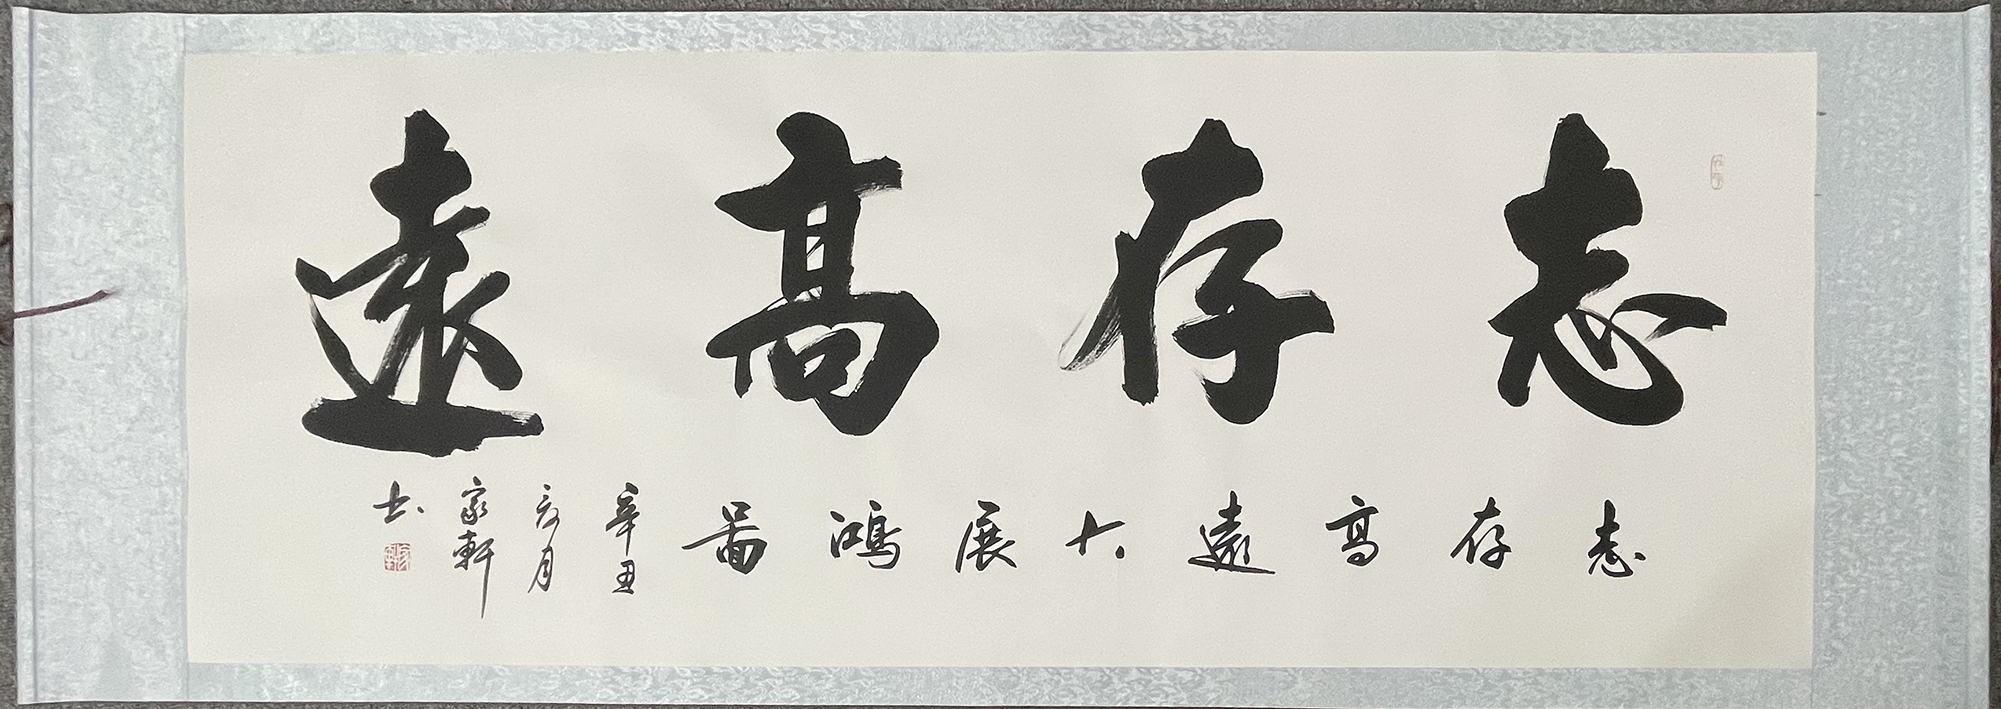 志存高遠
志存高遠大展鴻啚
辛丑
亥月
家軒
书